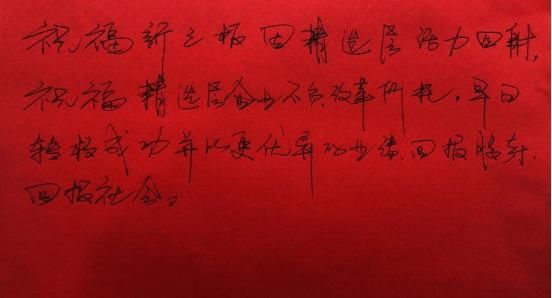 祝福新三板因精选层活力四射,
祝福精选层企业不负改革所托,早日
转板成功并以更优异的业绩回报股东,
回报社会。